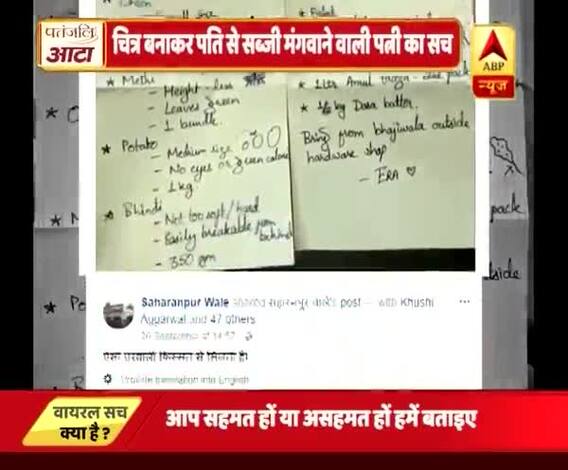 पतंजलि
आटा
चित्र बनाकर पति से सब्जी मंगवाने वाली पत्नी का सच
ABP
न्यूज़
* Methi
- Height - less
- Leaves green
- 1 bundle.
* Potato
- Medium size
- No eyes or green colored
- 1 kg
* Bhindi
- Not too soft/hard
- Easily breakable from behind
- 350 gm
* 1 liter Amul
pack
* 1/2 kg Dosa batter.
Bring from bhajiwala outside
hardware shop
- ERA ♡
pack
tside
Saharanpur Wale shared सहारनपुर वाले's post — with Khushi
Aggarwal and 47 others
ऐसी घरवाली किस्मत से मिलती है।
Provide translation into English
वायरल सच
क्या है ?
आप सहमत हों या असहमत हों हमें बताइए